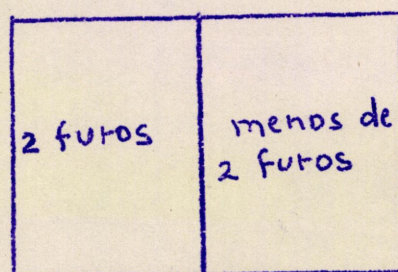 2 furos
menos de
2 furos